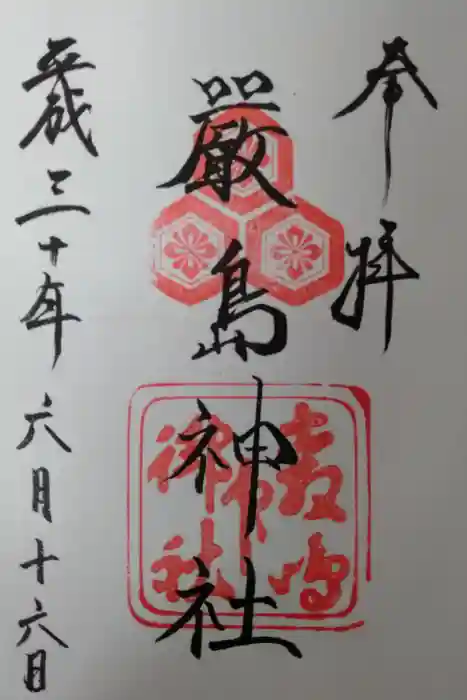 奉拝
嚴島神社
平成三十年 六月十六日